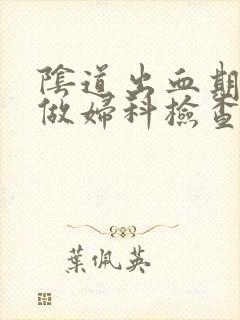 陰道出血期
做婦科檢查
葉佩英